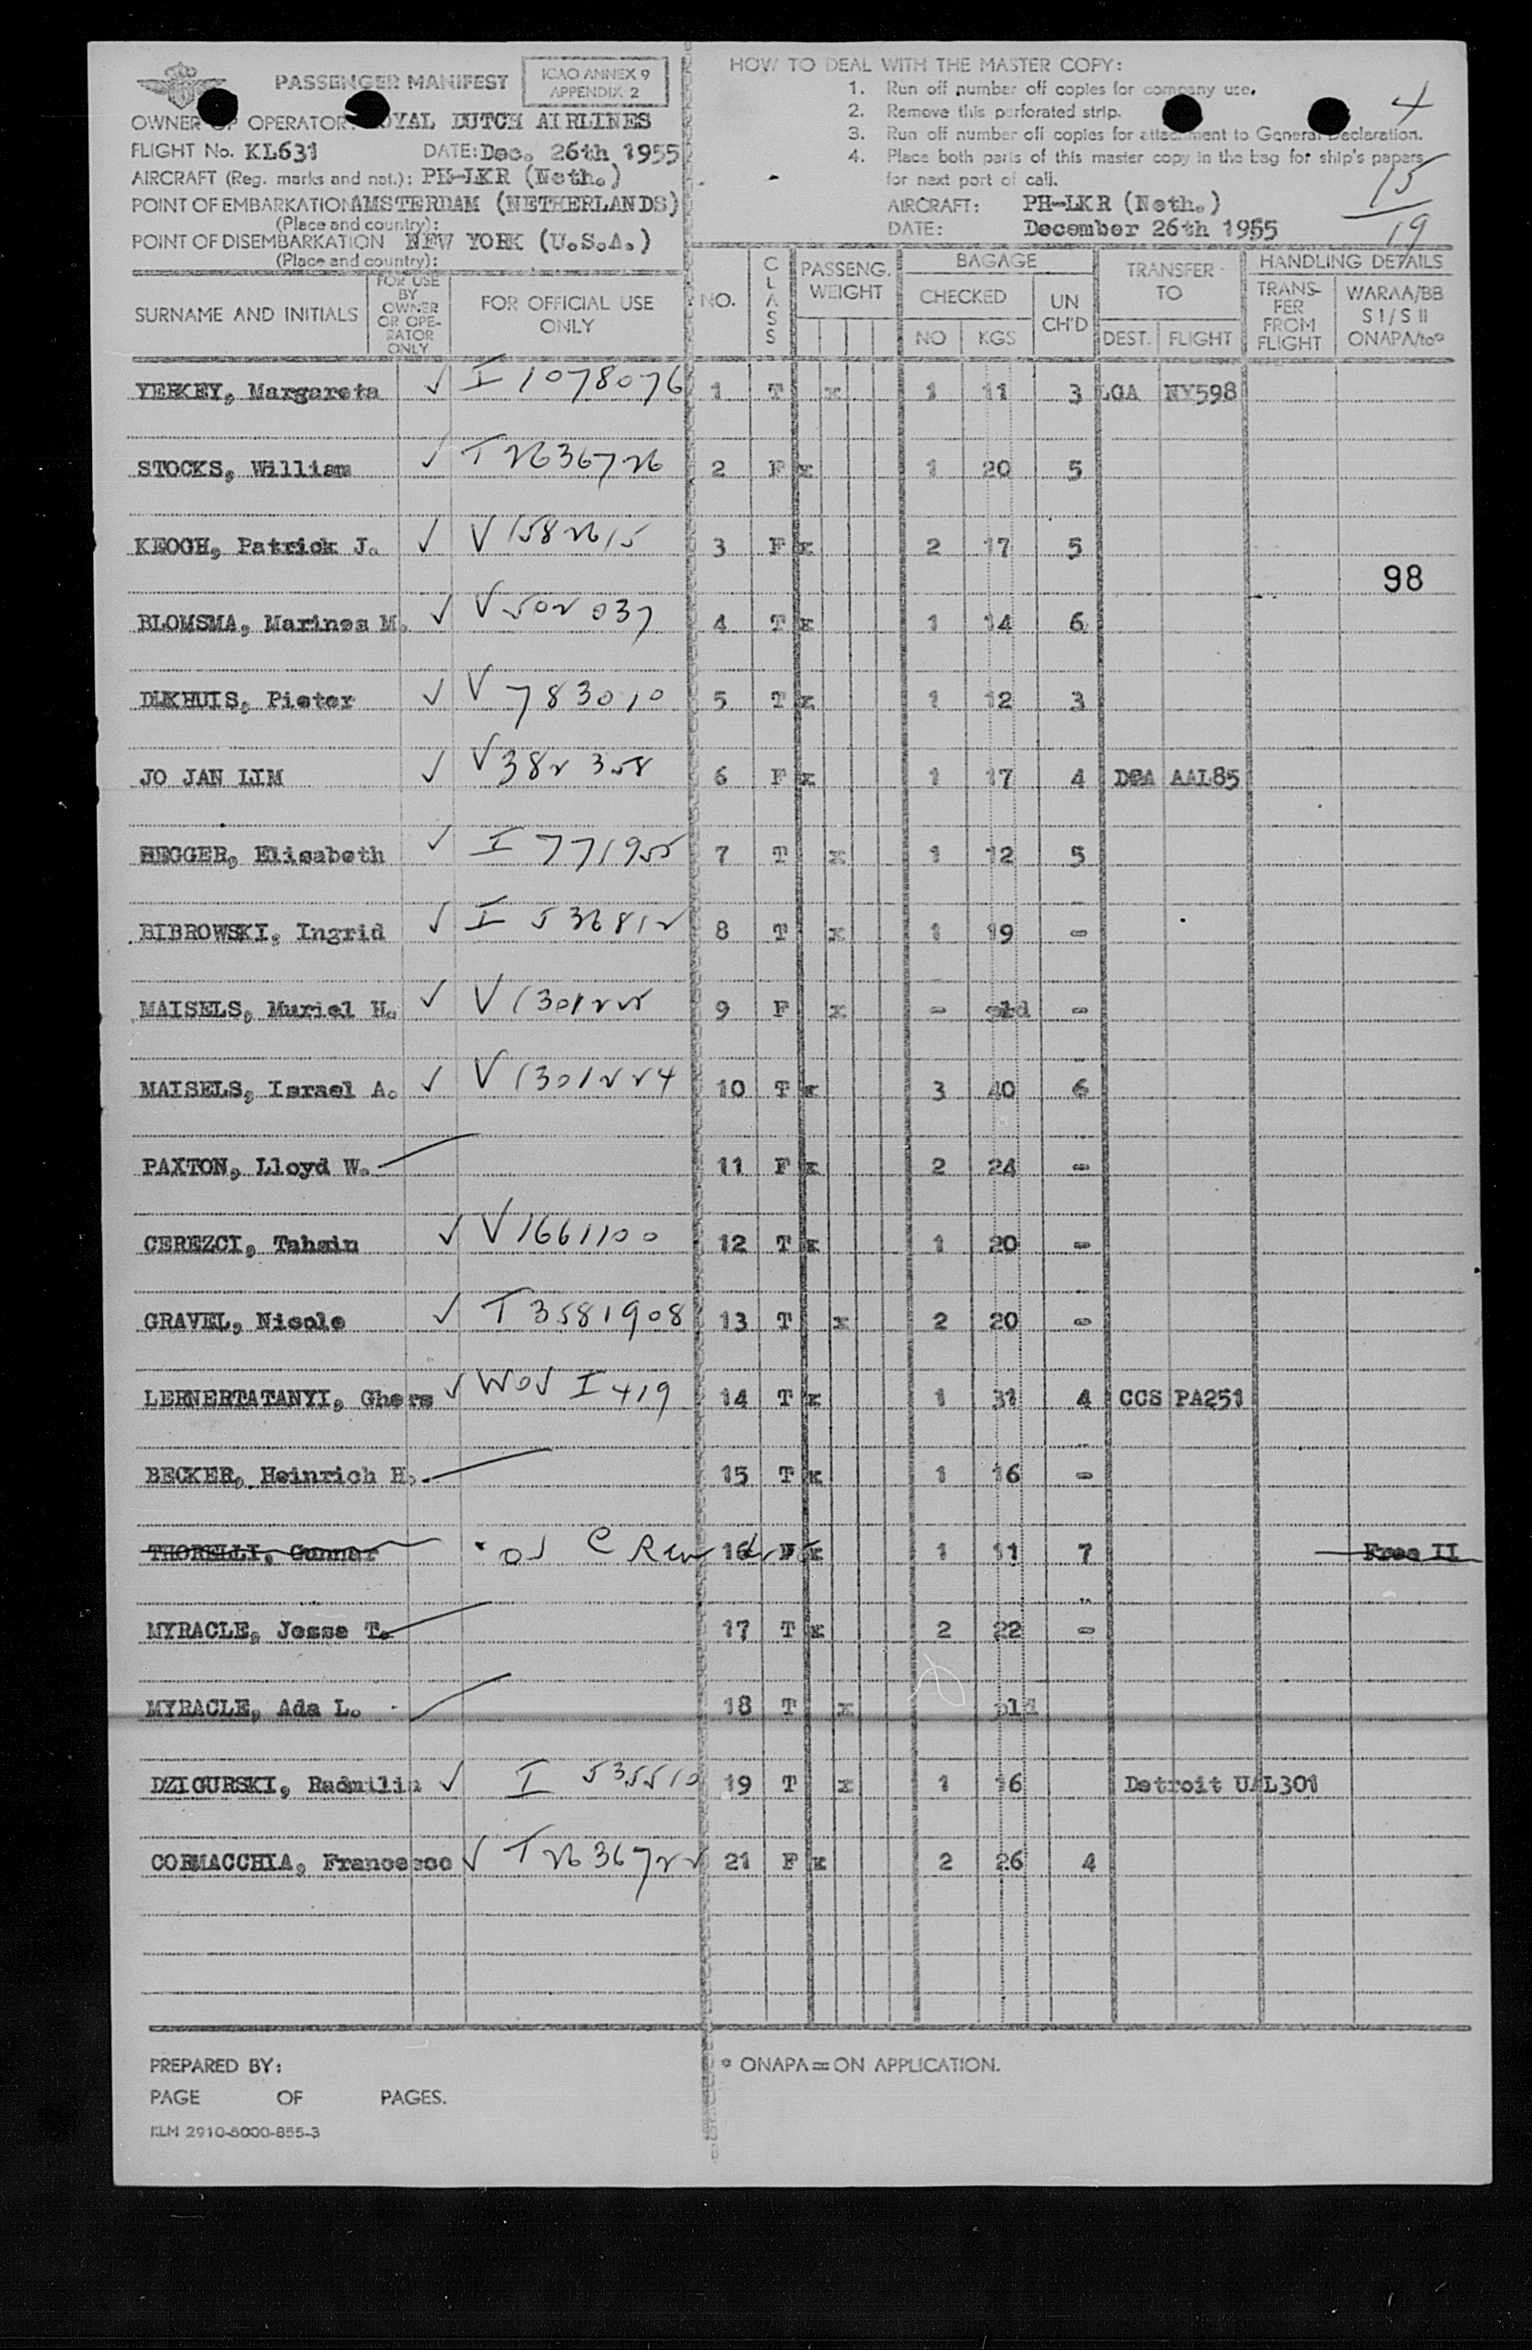 PASSENGER MANIFEST
ICAO ANNEX 9
APPENDIX 2
OWNER OR OPERATOR: ROYAL DUTCH AIRLINES
FLIGHT No. KL631 DATE: Dec. 26th 1955
AIRCRAFT (Reg. marks and nat.): PH-LKR (Neth.)
POINT OF EMBARKATION AMSTERDAM (NETHERLANDS)
(Place and country):
POINT OF DISEMBARKATION NEW YORK (U.S.A.)
(Place and country):
HOW TO DEAL WITH THE MASTER COPY:
1. Run off number off copies for company use.
2. Remove this perforated strip.
3. Run off number off copies for attachment to General Declaration.
4. Place both parts of this master copy in the bag for ship's papers
for next port of call.
AIRCRAFT: PH-LKR (Neth.)
DATE: December 26th 1955
4
15
19
SURNAME AND INITIALS
FOR USE BY OWNER OR OPE-RATOR ONLY
FOR OFFICIAL USE ONLY
NO.
CLASS
PASSENG. WEIGHT
BAGAGE
CHECKED
NO KGS
UN CH'D
TRANSFER TO
DEST. FLIGHT
HANDLING DETAILS
TRANS-FER FROM FLIGHT
WARAA/BB S I / S II ONAPA/to°
YERKEY, Margareta ✓ I 1078076 1 T x 1 11 3 LGA NY598
STOCKS, William ✓ T2636726 2 F x 1 20 5
KEOGH, Patrick J. ✓ V1582615 3 F x 2 17 5
98
BLOMSMA, Marinos M. ✓ V502037 4 T x 1 14 6
DIJKHUIS, Pieter ✓ V783010 5 T x 1 12 3
JO JAN LIM ✓ V382358 6 F x 1 17 4 DCA AAL85
HEGGER, Elisabeth ✓ I 771955 7 T x 1 12 5
BIBROWSKI, Ingrid ✓ I 536812 8 T x 1 19 -
MAISELS, Muriel H. ✓ V1301225 9 F x - pld -
MAISELS, Israel A. ✓ V1301224 10 T x 3 40 6
PAXTON, Lloyd W. 11 F x 2 24 -
CEREZCI, Tahsin ✓ V1661100 12 T x 1 20 -
GRAVEL, Nicole ✓ T3581908 13 T x 2 20 -
LERNERTATANYI, Ghers ✓ WOV I 419 14 T x 1 31 4 CCS PA251
BECKER, Heinrich H. 15 T x 1 16 -
THORELLI, Gunnar 16 F x 1 11 7 Free II
MYRACLE, Jesse T. 17 T x 2 22 -
MYRACLE, Ada L. 18 T x pld
DZIGURSKI, Radmilia ✓ I 535510 19 T x 1 16 Detroit UAL301
CORMACCHIA, Francesco ✓ T2636722 21 F x 2 26 4
PREPARED BY:
PAGE OF PAGES.
KLM 2910-5000-855-3
° ONAPA = ON APPLICATION.